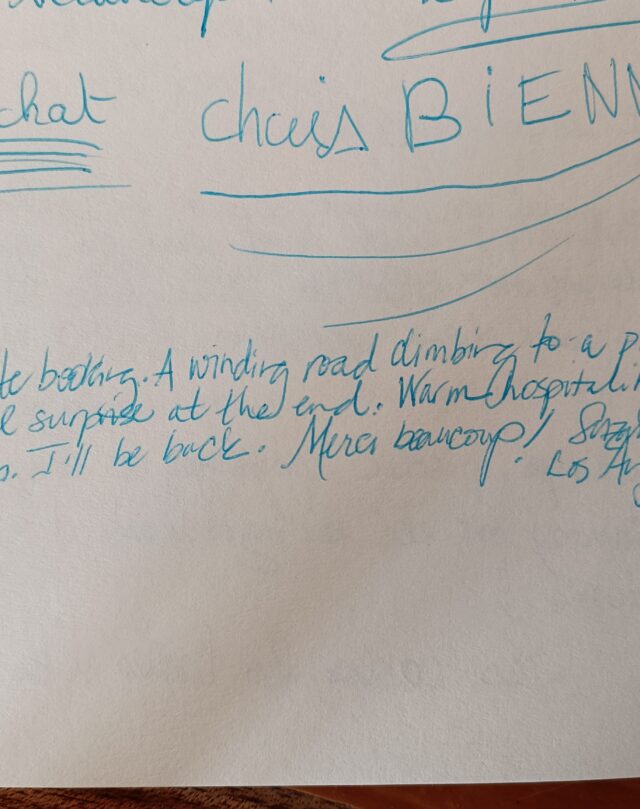 chat chris BIENN
te booking. A winding road climbing to a p
l surprise at the end. Warm hospitali
s. I'll be back. Merci beaucoup!
Los An